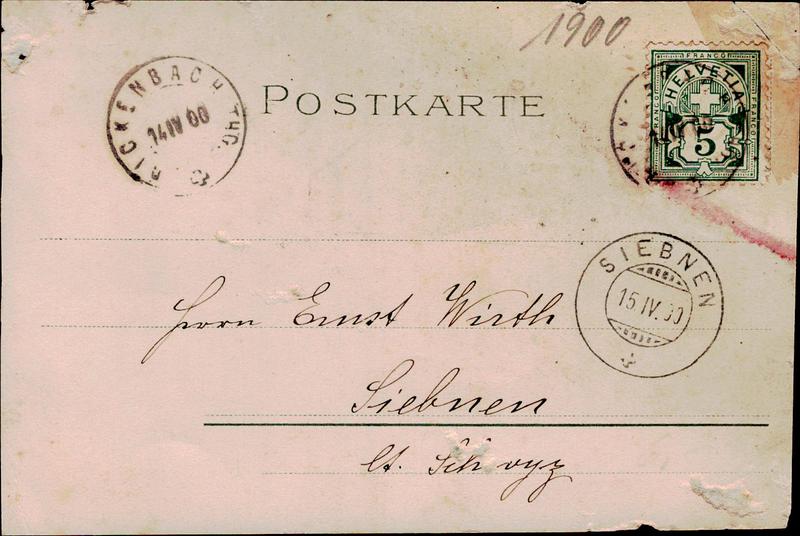 1900
POSTKARTE
RICKENBACH THG.
14 IV 00
FRANCO
HELVETIA
FRANCO
FRANCO
5
SIEBNEN
15.IV.00
Herrn Ernst Wirth
Siebnen
Ct. Schwyz